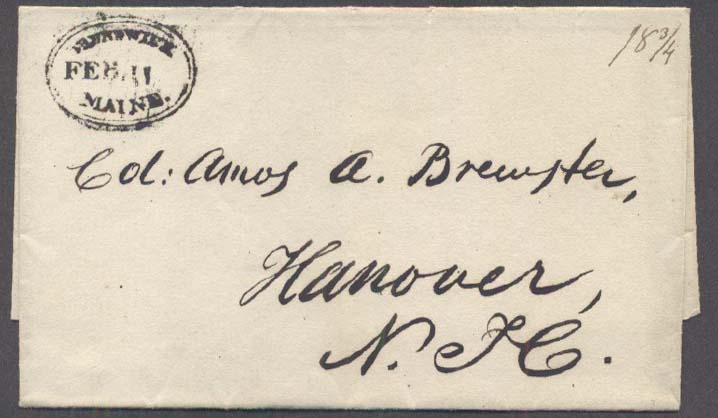 BRUNSWICK
FEB. 11
MAINE.
18 3/4
Col: Amos A. Brewster,
Hanover,
N. H.